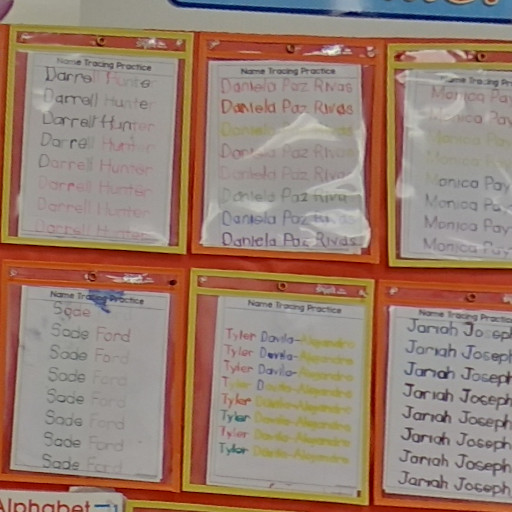 Name Tracing Practice
Darrell Hunte
Darrell Hunter
Darrell Hunter
Darrell Hunter
Darrell Hunter
Darrell Hunter
Darrell Hunter
Darrell Hunter
Name Tracing Practice
Daniela Paz Rivas
Daniela Paz Rivas
Daniela Paz Rivas
Daniela Paz Rivas
Daniela Paz Rivas
Daniela Paz Rivas
Daniela Paz Rivas
Daniela Paz Rivas
Name Tracing Prac
Monica Pay
Monica Pay
Monica Pay
Monica Pay
Monica Pay
Monica Pa
Monica Pay
Monica Pay
Name Tracing Practice
Sade
Sade Ford
Sade Ford
Sade Ford
Sade Ford
Sade Ford
Sade Ford
Sade Ford
Name Tracing Practice
Tyler Davila-Alejandro
Tyler Davila-Alejandro
Tyler Davila-Alejandro
Tyler Davila-Alejandro
Tyler Davila-Alejandro
Tyler Davila-Alejandro
Tyler Davila-Alejandro
Tyler Davila-Alejandro
Name Tracing Practic
Jariah Joseph
Jariah Joseph
Jariah Joseph
Jariah Joseph
Jariah Joseph
Jariah Joseph
Jariah Joseph
Jariah Joseph
Alphabet